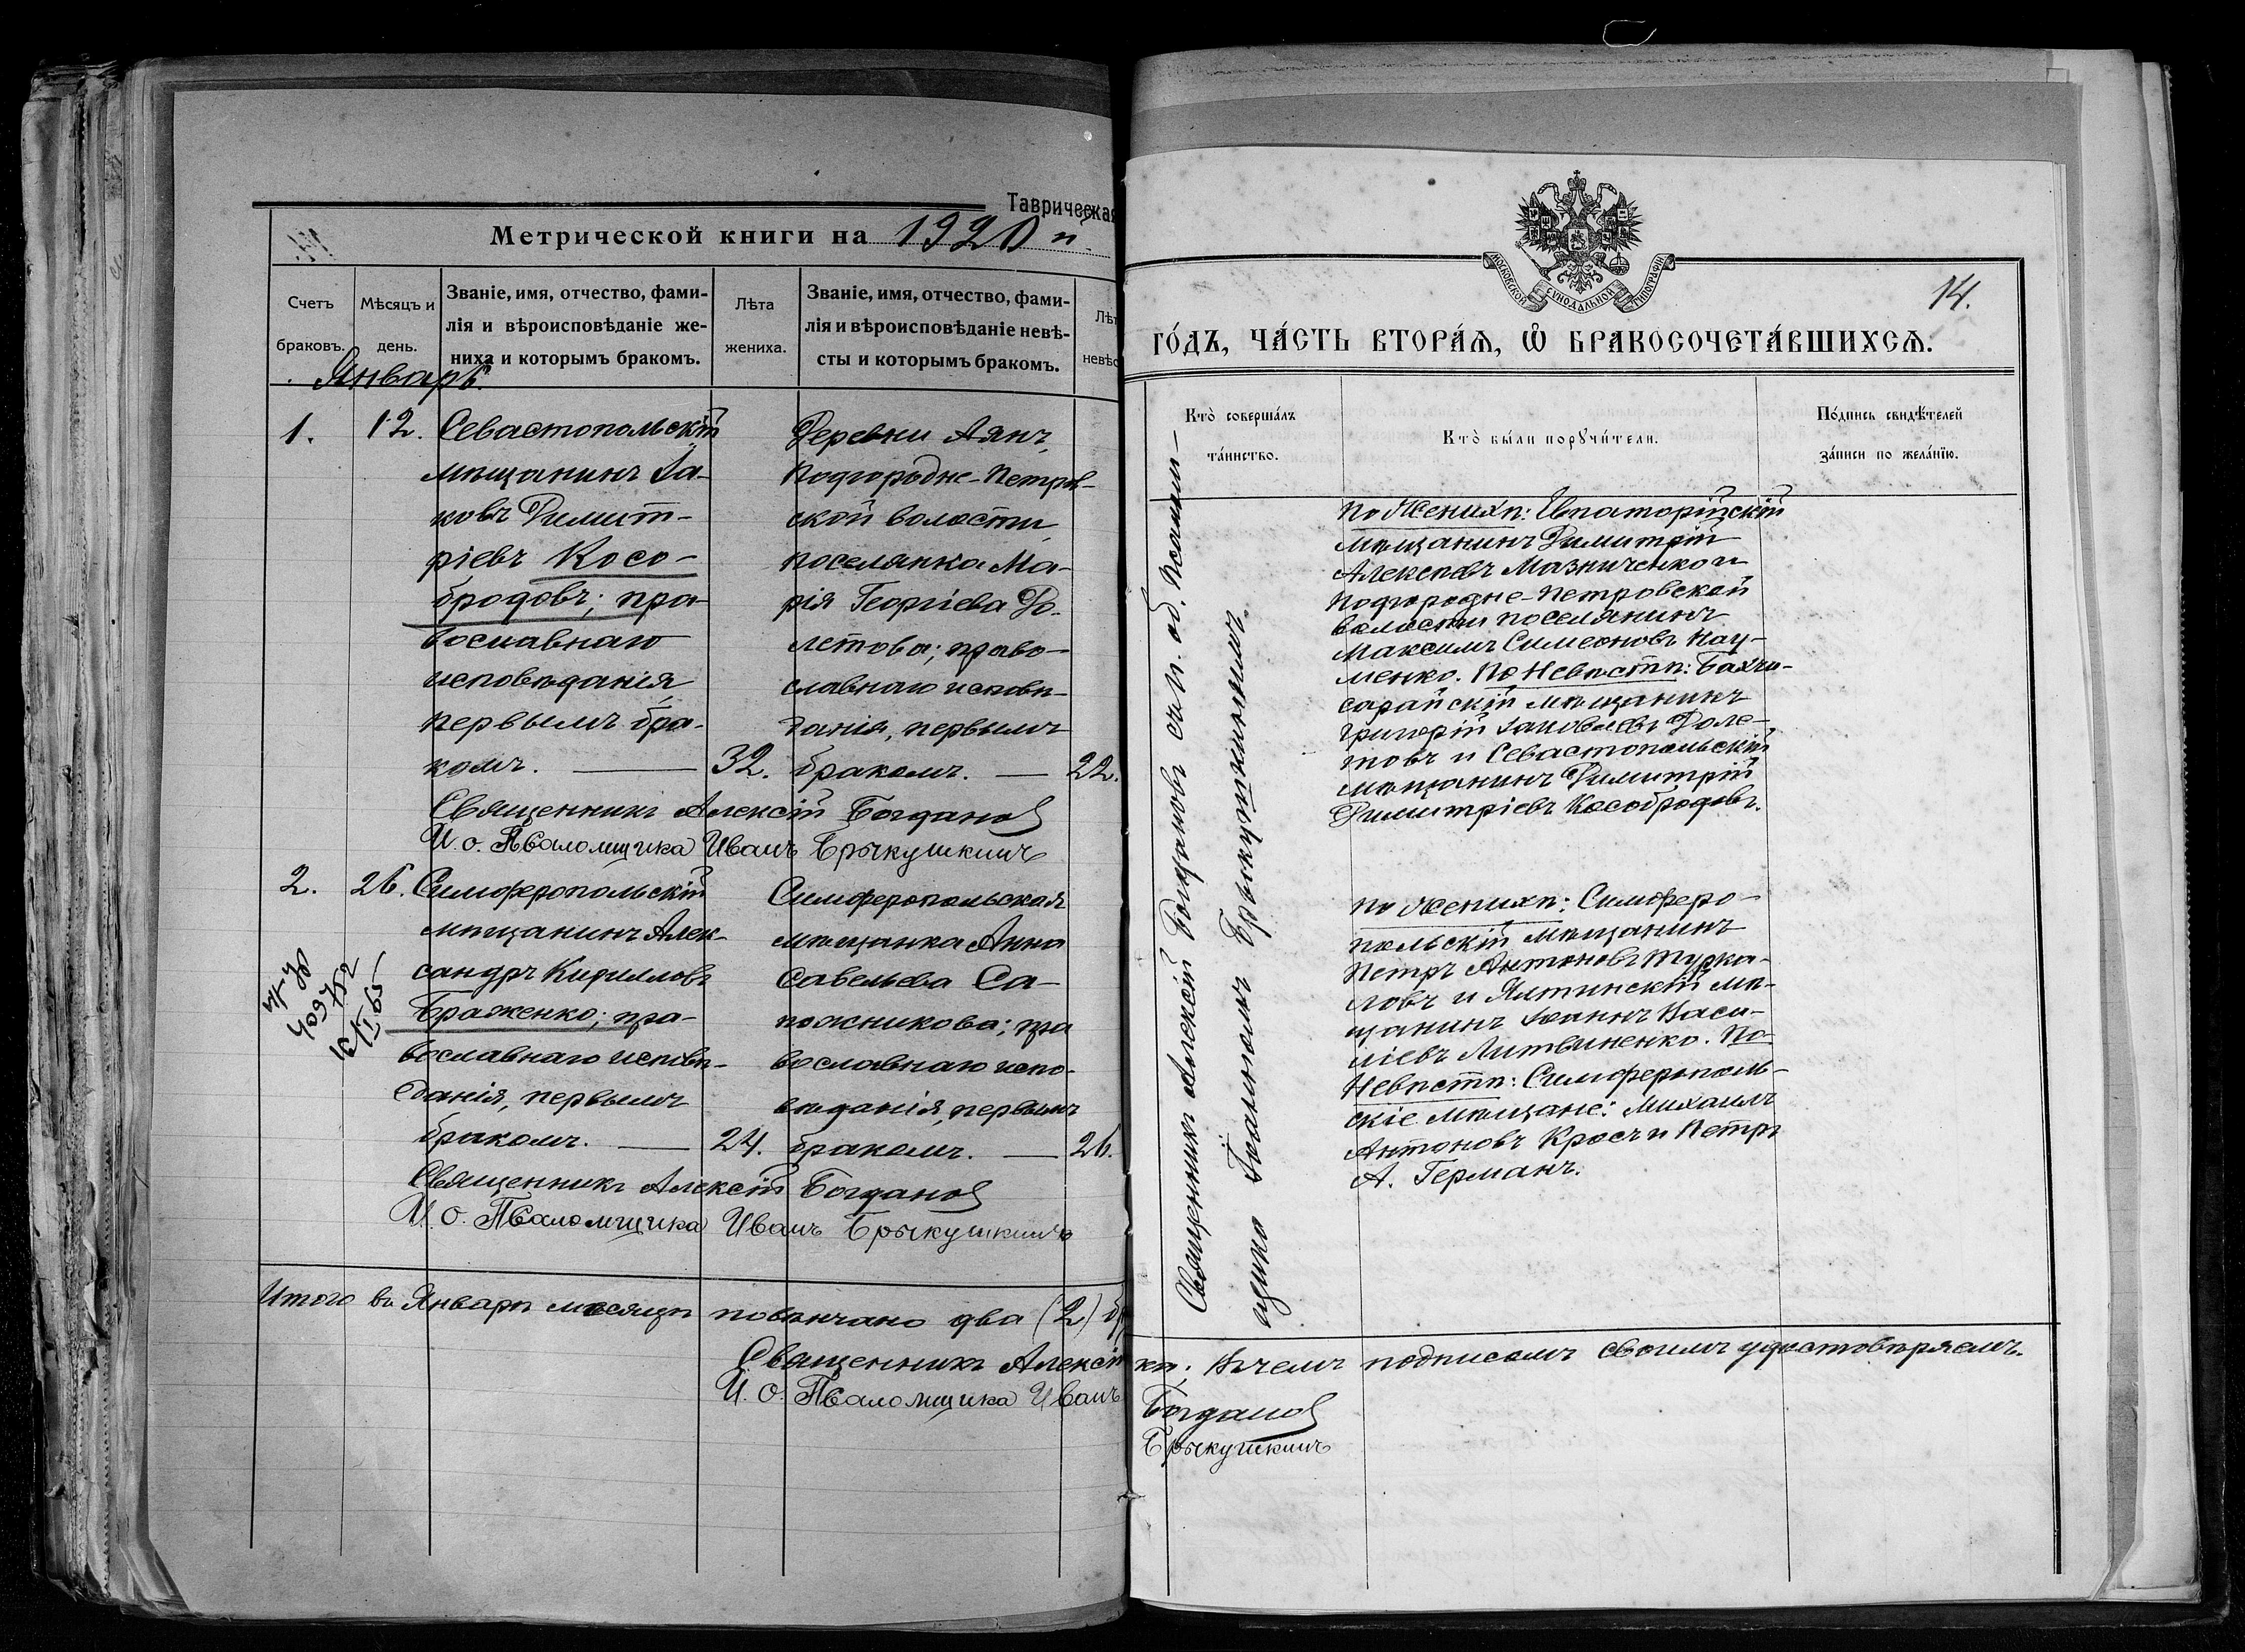 Таврическая
Метрической книги на 1920й
Счетъ браковъ.
Мѣсяцъ и день.
Званіе, имя, отчество, фами-
лія и вѣроисповѣданіе же-
ниха и которымъ бракомъ.
Лѣта жениха.
Званіе, имя, отчество, фами-
лія и вѣроисповѣданіе невѣ-
сты и которымъ бракомъ.
Январь.
1.
12.
Севастопольскій
мѣщанинъ Іа-
ковъ Димит-
ріевъ Косо-
бродовъ; пра-
вославнаго
исповѣданія,
первымъ бра-
комъ. — 32.
Деревни Аянъ,
Подгородне-Петров-
ской волости,
поселянка Ма-
рія Георгіева До-
летова; право-
славнаго исповѣ-
данія, первымъ
бракомъ. — 22.
Священникъ Алексій Богданов
И. о. Псаломщика Иванъ Брыкушкинъ
2.
26.
Симферопольскій
мѣщанинъ Алек-
сандръ Кирилловъ
Браженко; пра-
вославнаго исповѣ-
данія, первымъ
бракомъ. — 24.
Симферопольская
мѣщанка Анна
Савельева Са-
пожникова; пра
вославнаго испо-
вѣданія, первымъ
бракомъ. — 26.
Священникъ Алексій Богданов
И. о. Псаломщика Иванъ Брыкушкинъ
Итого въ Январѣ мѣсяцѣ повѣнчано два (2) бр
Священникъ Алексій
И. О. Псаломщика Иванъ
МОСКОВСКОЙ СУНОДАЛЬНОЙ ТИПОГРАФІИ
14.
го́дъ, ча́сть втора́ѧ, ѡ҆ бракосочета́вшихсѧ.
Кто̀ соверша́лъ
та́инство.
Кто̀ бы́ли порꙋчи́тели.
По́дпись свидѣ́телей
за́писи по жела́нїю.
Священникъ Алексій Богдановъ съ и. об. Псалом-
щика Іоанномъ Брыкушкинымъ
По Женихѣ: Евпаторійскій
мѣщанинъ Димитрій
Алексѣевъ Мазниченко и
Подгородне-Петровской
волости поселянинъ
Максимъ Симеоновъ Нау-
менко. По Невѣстѣ: Бахчи-
сарайскій мѣщанинъ
Григорій Іаковлевъ Доле-
товъ и Севастопольскій
мѣщанинъ Димитрій
Димитріевъ Кособродовъ.
по Женихѣ: Симферо-
польскій мѣщанинъ
Петръ Антоновъ Турка-
ловъ и Ялтинскій мѣ-
щанинъ Іоаннъ Васи-
ліевъ Литвиненко. По
Невѣстѣ: Симферополь-
скіе мѣщане: Михаилъ
Антоновъ Кросъ и Петръ
А. Германъ.
кѣ; въ чемъ подписомъ своимъ удостовѣряемъ.
Богданов
Брыкушкинъ